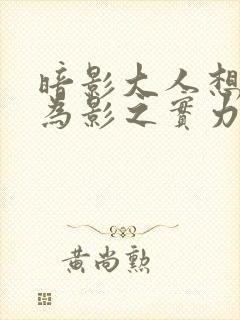 暗影大人想
為影之實力
黃尚勲